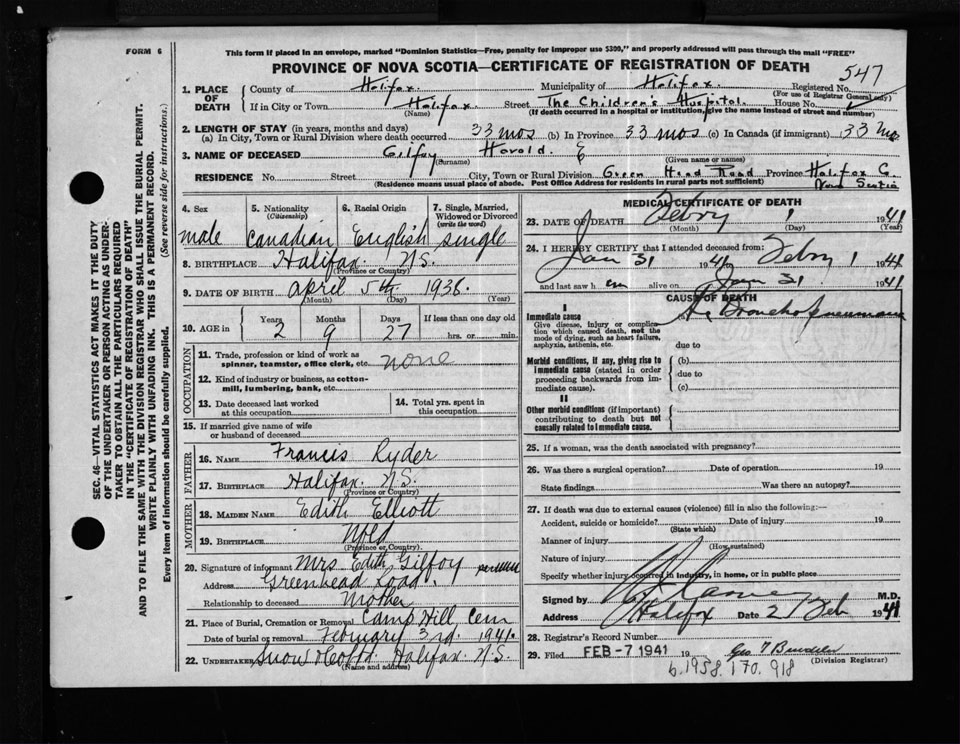 FORM 6
This form if placed in an envelope, marked "Dominion Statistics—Free, penalty for improper use $300," and properly addressed will pass through the mail "FREE"
PROVINCE OF NOVA SCOTIA—CERTIFICATE OF REGISTRATION OF DEATH
547
1. PLACE OF DEATH
County of Halifax. Municipality of Halifax. Registered No.
(For use of Registrar General only)
If in City or Town Halifax. Street The Children's Hospital. House No.
(Name) (If death occurred in a hospital or institution, give the name instead of street and number)
2. LENGTH OF STAY (in years, months and days)
(a) In City, Town or Rural Division where death occurred 33 mos (b) In Province 33 mos (c) In Canada (if immigrant) 33 mo
3. NAME OF DECEASED Gilfoy Harold. E
(Surname) (Given name or names)
RESIDENCE No. Street City, Town or Rural Division Green Head Road Province Halifax C.
Nova Scotia
(Residence means usual place of abode. Post Office Address for residents in rural parts not sufficient)
4. Sex male
5. Nationality (Citizenship) Canadian
6. Racial Origin English
7. Single, Married, Widowed or Divorced (write the word) single
8. BIRTHPLACE Halifax N.S.
(Province or Country)
9. DATE OF BIRTH April 5th 1938.
(Month) (Day) (Year)
10. AGE in Years Months Days If less than one day old
2 9 27 hrs. or min.
OCCUPATION
11. Trade, profession or kind of work as spinner, teamster, office clerk, etc. none
12. Kind of industry or business, as cotton-mill, lumbering, bank, etc.
13. Date deceased last worked at this occupation
14. Total yrs. spent in this occupation
15. If married give name of wife or husband of deceased
FATHER
16. NAME Francis Ryder
17. BIRTHPLACE Halifax. N.S.
(Province or Country)
MOTHER
18. MAIDEN NAME Edith Elliott
19. BIRTHPLACE Nfld
(Province or Country).
20. Signature of informant Mrs Edith Gilfoy
Address Greenhead Road.
Relationship to deceased Mother
21. Place of Burial, Cremation or Removal Camp Hill, Cem
Date of burial or removal February 3rd. 1941.
22. UNDERTAKER Snow & Co Ltd. Halifax. N.S.
(Name and address)
MEDICAL CERTIFICATE OF DEATH
23. DATE OF DEATH Febry 1 1941
(Month) (Day) (Year)
24. I HEREBY CERTIFY that I attended deceased from:
Jan 31 1941 to Febry 1 1941
and last saw h im alive on Jan 31 1941
CAUSE OF DEATH
I
Immediate cause
Give disease, injury or complication which caused death, not the mode of dying, such as heart failure, asphyxia, asthenia, etc.
(a) Bronchopneumonia
due to
Morbid conditions, if any, giving rise to immediate cause (stated in order proceeding backwards from immediate cause).
(b)
due to
(c)
II
Other morbid conditions (if important) contributing to death but not causally related to immediate cause.
25. If a woman, was the death associated with pregnancy?
26. Was there a surgical operation? Date of operation 19
State findings Was there an autopsy?
27. If death was due to external causes (violence) fill in also the following:—
Accident, suicide or homicide? Date of injury 19
(State which)
Manner of injury
(How sustained)
Nature of injury
Specify whether injury occurred in industry, in home, or in public place
Signed by M.D.
Address Halifax Date 2 Feb 1941
28. Registrar's Record Number
29. Filed FEB -7 1941 19
(Division Registrar)
b. 1938. 170. 918
SEC. 46—VITAL STATISTICS ACT MAKES IT THE DUTY
OF THE UNDERTAKER OR PERSON ACTING AS UNDER-
TAKER TO OBTAIN ALL THE PARTICULARS REQUIRED
IN THE "CERTIFICATE OF REGISTRATION OF DEATH"
AND TO FILE THE SAME WITH THE DIVISION REGISTRAR WHO SHALL ISSUE THE BURIAL PERMIT.
WRITE PLAINLY WITH UNFADING INK. THIS IS A PERMANENT RECORD.
Every item of information should be carefully supplied. (See reverse side for instructions.)